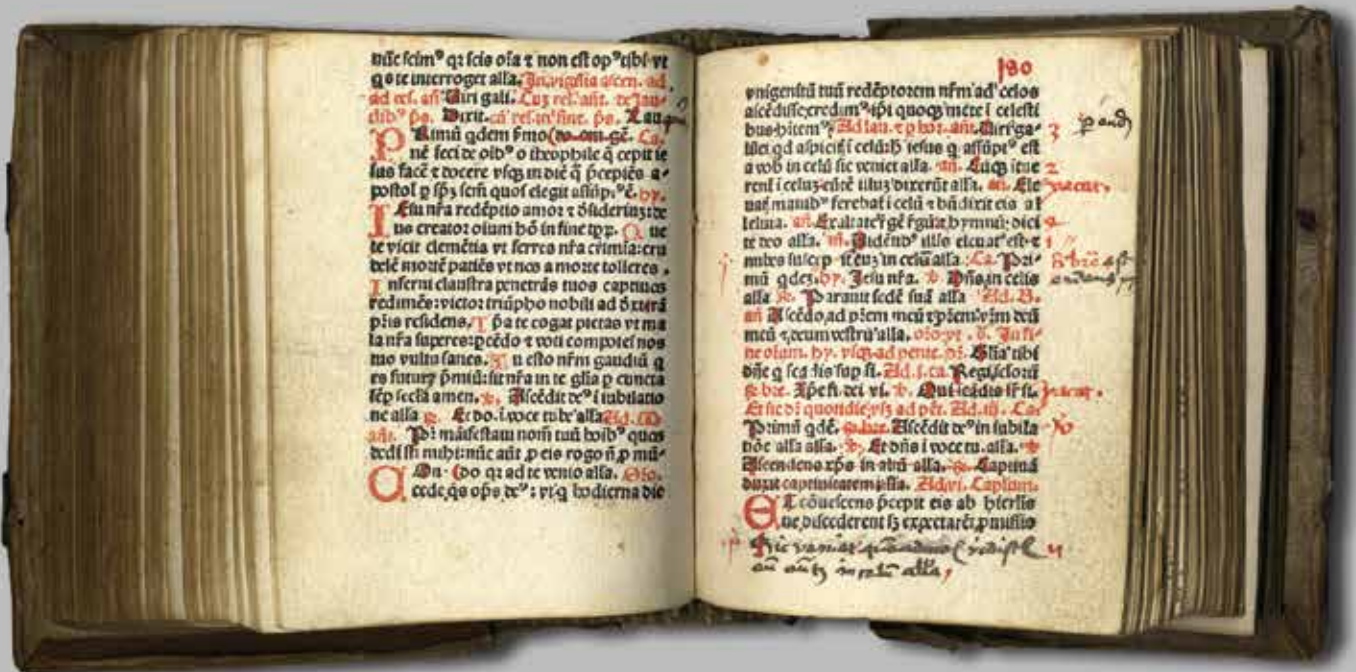 nūc scimꝰ qꝛ scis oīa ⁊ non est opꝰ tibi vt
q̄s te interroget alľa. In vigilia ascen. ad
ad ūs. añ Uiri gali.
dibꝰ ps. Dixit. ps. Lau
PRimū qdem ẜmo
nē feci de oībꝰ o theophile q̄ cepit ie
sus facē ⁊ docere vsqꝫ in diē q̄ p̄cepiēs a⸗
postoľ ꝑ sp̄m scm̄ quos elegit assūpꝰ ē. hy.
IEsu nr̄a redēptio amor ⁊ ꝺ̄sideriuꝫ: de
us creator oīum hō in fine tꝑꝝ. Q ue
te vicit clemētia vt ferres nr̄a crīmīa: cru
delē mortē patiēs vt nos a morte tolleres.
I nferni claustra penetrās tuos captiuos
redimēs: victor triūpho nobili ad dexterā
pr̄is residens. I p̄a te cogat pietas vt ma
la nr̄a superes: ꝑcēdo ⁊ voti compotes nos
tuo vultu saties. T u esto nr̄m gaudiū q
es futurꝰ p̄miū: sit nr̄a in te gľia ꝑ cuncta
sēꝑ secľa amen. ℣. Ascēdit deꝰ ī iubilatio
ne alľa ℟. Et do. ī voce tube alľa Ad. M
añ. Pr̄ māifestaui nom̄ tuū hoībꝰ quos
dedisti mihi: nūc aūt ꝓ eis rogo nō ꝓ mū⸗
ON⸗ (do qꝛ ad te venio alľa. Oŕo.
cede q̄s oīps deꝰ: vt q hodierna die
180
vnigenitū tuū redēptorem nr̄m ad celos
ascēdisse credimꝰ ip̄i quoqꝫ mēte ī celesti
bus hītemꝰ Ad lau. ⁊ ꝑ hor. añ. Uiri ga⸗
lilei qd aspicitꝭ ī celū: hic iesus q assūptꝰ est
a vob in celū sic veniet alľa. añ. Cuqꝫ ītue
rent ī celuꝫ eūtē illuꝫ dixerūt alľa. añ. Ele
uatꝭ manibꝰ ferebať ī celū ⁊ bn̄dixit eis al
leluia. añ. Exaltate regē regū ⁊ hymnū dici
te deo alľa. añ. Uidētibꝰ illis eleuatꝰ est ⁊
nubes suscepit euꝫ in celū alľa. Ca. Pri⸗
mū qdeꝫ. hy. Jesu nr̄a. ℣. Dn̄s in celis
alľa ℟. Parauit sedē suā alľa Ad. B.
añ Ascēdo ad pr̄em meū ⁊ pr̄em vr̄m deū
meū ⁊ deum vestrū alľa. oŕo. vt. s. In fi⸗
ne oīum. hy. vsqꝫ ad pente. dr̄. Gľia tibi
dn̄e q scādis suꝑ si. Ad. j. ca. Regi seclorū
℟. bre. Xp̄e fi. dei vi. ℣. Qui scādis
Et sic dr̄ quotidie vsqꝫ ad pēt. Ad. iij. Ca.
Primū qdē. ℟. bre. Ascēdit deꝰ in iubila
tiōe alľa alľa. ℣. Et dn̄s ī voce tu. alľa. ℣
Ascendens xp̄s in altū alľa. ℟. Captiuā
duxit captiuitatem alľa. Ad. vi. Capľum.
ET cōuescens p̄cepit eis ab hierosl
ne discederent sꝫ expectarēt ꝓmissio